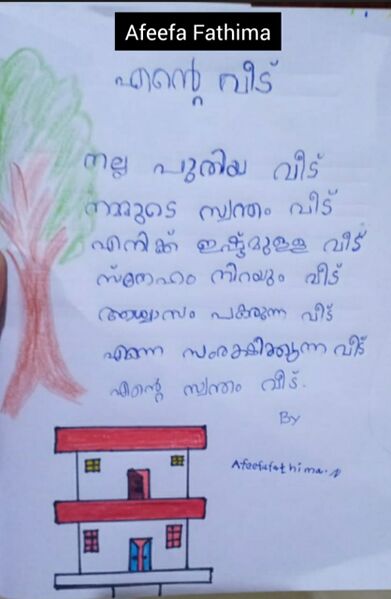 Afeefa Fathima
എന്റെ വീട്
നല്ല പുതിയ വീട്
നമ്മുടെ സ്വന്തം വീട്
എനിക്ക് ഇഷ്ടമുള്ള വീട്
സ്നേഹം നിറയും വീട്
ആശ്വാസം പകരുന്ന വീട്
എന്നെ സംരക്ഷിക്കുന്ന വീട്
എന്റെ സ്വന്തം വീട്.
By
Afeefafathima. N